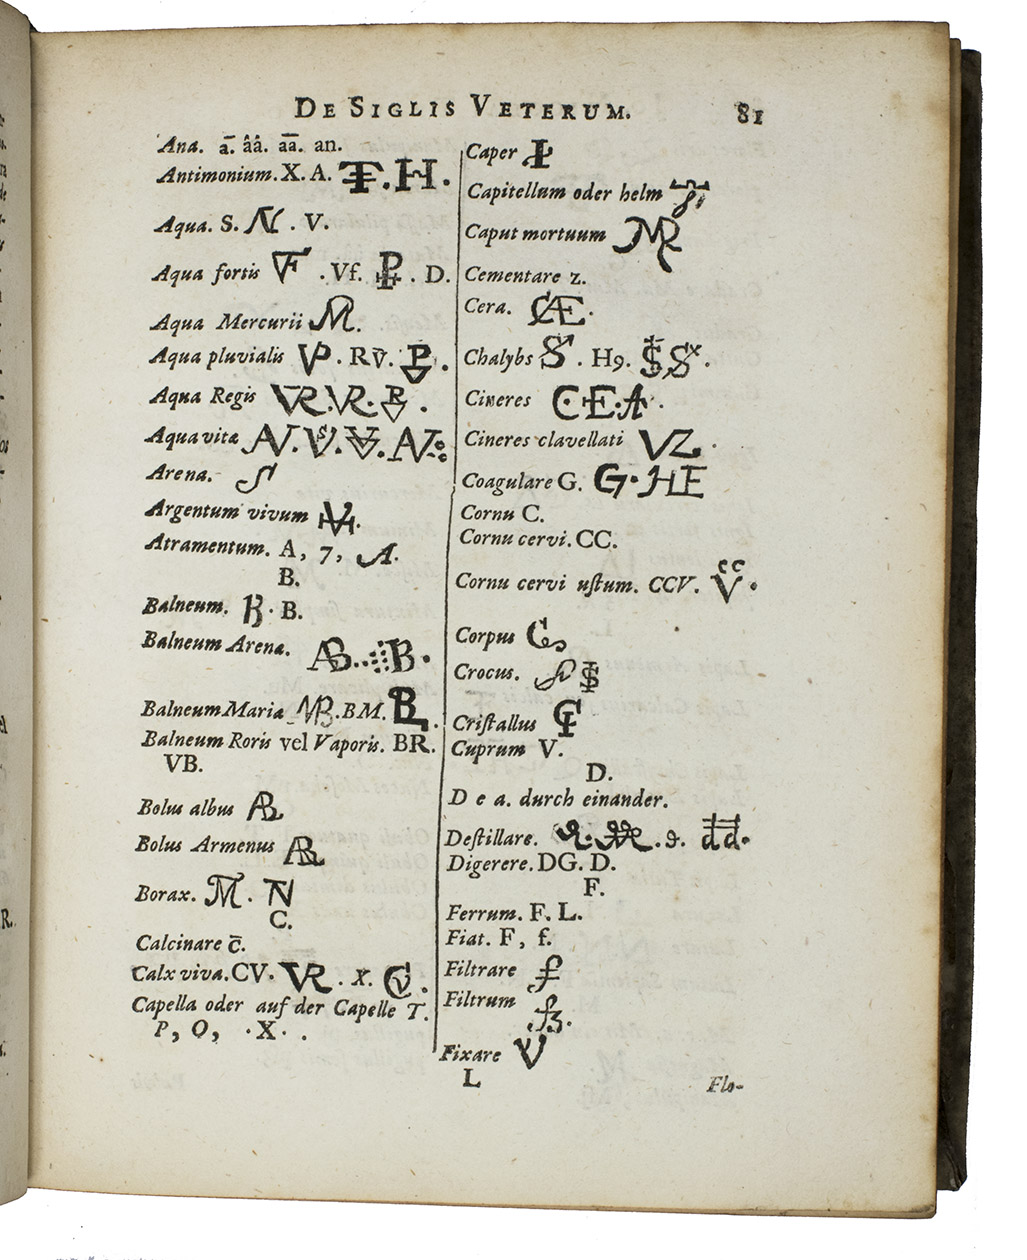 DE SIGLIS VETERUM. 81
Ana. a̅. ââ. a̅a̅. an.
Antimonium. X. A.
Aqua. S. . V.
Aqua fortis . Vf. . D.
Aqua Mercurii
Aqua pluvialis . RV.
Aqua Regis
Aqua vitæ
Arena.
Argentum vivum
Atramentum. A, 7, A.
B.
Balneum. . B.
Balneum Arenæ.
Balneum Mariæ . BM.
Balneum Roris vel Vaporis. BR.
VB.
Bolus albus
Bolus Armenus
Borax.
C.
Calcinare c̅.
Calx viva. CV. . X.
Capella oder auf der Capelle T.
P, O, · X · .
Caper
Capitellum oder helm
Caput mortuum
Cementare z.
Cera.
Chalybs . H9.
Cineres C·E·A·
Cineres clavellati VZ .
Coagulare G. G·HE
Cornu C.
Cornu cervi. CC.
Cornu cervi uſtum. CCV.
Corpus
Crocus.
Criſtallus
Cuprum V.
D.
D e a. durch einander.
Deſtillare.
Digerere. DG. D.
F.
Ferrum. F. L.
Fiat. F, f.
Filtrare
Filtrum
Fixare
L Flo-